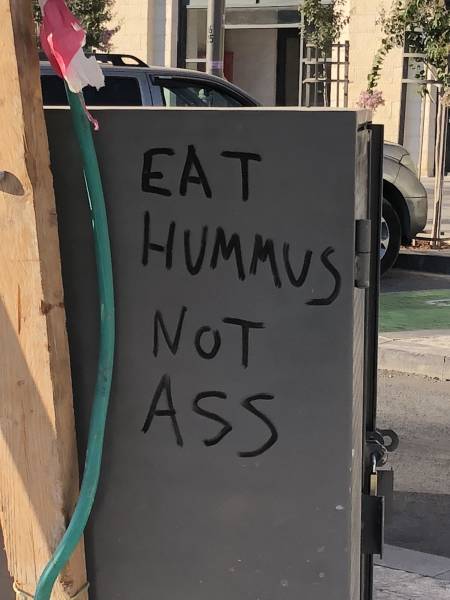 EAT
HUMMUS
NOT
ASS